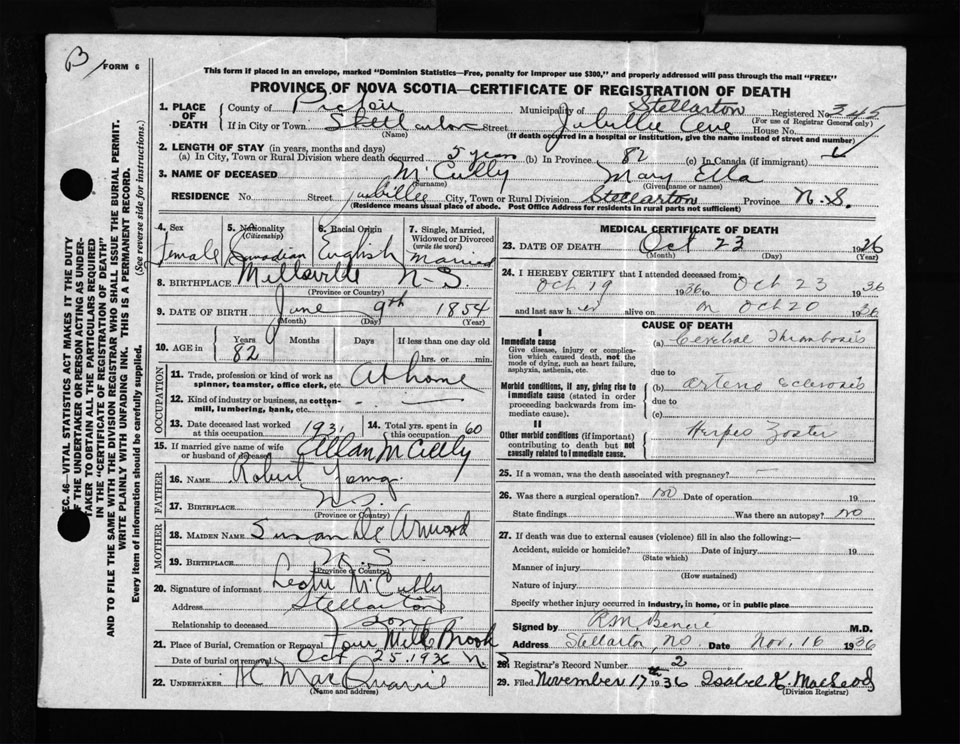 B/ FORM 6
This form if placed in an envelope, marked "Dominion Statistics—Free, penalty for improper use $300," and properly addressed will pass through the mail "FREE"
PROVINCE OF NOVA SCOTIA—CERTIFICATE OF REGISTRATION OF DEATH
1. PLACE OF DEATH County of Pictou Municipality of Stellarton Registered No. 345
(For use of Registrar General only)
If in City or Town Stellarton Street Jubillee Ave House No.
(Name) (If death occurred in a hospital or institution, give the name instead of street and number)
2. LENGTH OF STAY (in years, months and days)
(a) In City, Town or Rural Division where death occurred 5 years (b) In Province 82 (c) In Canada (if immigrant)
3. NAME OF DECEASED McCully Mary Ella
(Surname) (Given name or names)
RESIDENCE No. Street Jubillee City, Town or Rural Division Stellarton Province N.S.
(Residence means usual place of abode. Post Office Address for residents in rural parts not sufficient)
4. Sex Female
5. Nationality (Citizenship) Canadian
6. Racial Origin English
7. Single, Married, Widowed or Divorced (write the word) Married
8. BIRTHPLACE Millsville N-S.
(Province or Country)
9. DATE OF BIRTH June 9th 1854
(Month) (Day) (Year)
10. AGE in Years 82 Months Days If less than one day old hrs. or min.
OCCUPATION
11. Trade, profession or kind of work as spinner, teamster, office clerk, etc. At home
12. Kind of industry or business, as cotton-mill, lumbering, bank, etc. - —
13. Date deceased last worked at this occupation 1931 14. Total yrs. spent in this occupation 60
15. If married give name of wife or husband of deceased Allan McCully
FATHER
16. NAME Robert
17. BIRTHPLACE N.S.
(Province or Country)
MOTHER
18. MAIDEN NAME Susan De
19. BIRTHPLACE N.S
(Province or Country)
20. Signature of informant McCully
Address Stellarton
Relationship to deceased Son
21. Place of Burial, Cremation or Removal Four Mile Brook
Date of burial or removal Oct 25 1936
22. UNDERTAKER MacQuarrie
(Name and address)
MEDICAL CERTIFICATE OF DEATH
23. DATE OF DEATH Oct 23 1926
(Month) (Day) (Year)
24. I HEREBY CERTIFY that I attended deceased from:
Oct 19 1936 to Oct 23 1936
and last saw her alive on Oct 20 1936
CAUSE OF DEATH
I
Immediate cause
Give disease, injury or complication which caused death, not the mode of dying, such as heart failure, asphyxia, asthenia, etc.
(a) Cerebral Thrombosis
due to
Morbid conditions, if any, giving rise to immediate cause (stated in order proceeding backwards from immediate cause).
(b) Arterio Sclerosis
due to
(c)
II
Other morbid conditions (if important) contributing to death but not causally related to immediate cause.
Herpes Zoster
25. If a woman, was the death associated with pregnancy? —
26. Was there a surgical operation? no Date of operation 19
State findings Was there an autopsy? no
27. If death was due to external causes (violence) fill in also the following:—
Accident, suicide or homicide? Date of injury 19
(State which)
Manner of injury
(How sustained)
Nature of injury
Specify whether injury occurred in industry, in home, or in public place
Signed by M.D.
Address Stellarton, N.S. Date Nov. 16 1936
28. Registrar's Record Number 2
29. Filed November 17th 1936 Isabel K. MacLeod
(Division Registrar)
SEC. 46—VITAL STATISTICS ACT MAKES IT THE DUTY
OF THE UNDERTAKER OR PERSON ACTING AS UNDERTAKER TO OBTAIN ALL THE PARTICULARS REQUIRED
IN THE "CERTIFICATE OF REGISTRATION OF DEATH"
AND TO FILE THE SAME WITH THE DIVISION REGISTRAR WHO SHALL ISSUE THE BURIAL PERMIT.
WRITE PLAINLY WITH UNFADING INK. THIS IS A PERMANENT RECORD.
Every item of information should be carefully supplied. (See reverse side for instructions.)